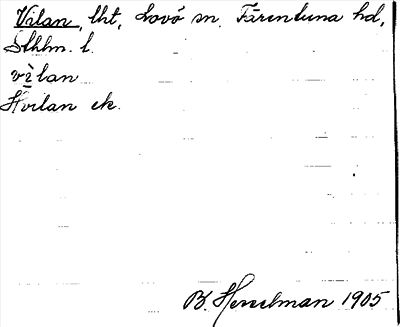 Vilan, lht, Lovö sn, Färentuna hd,
Sthlm. l.
vì̱lan
Hvilan ek.
B. Hesselman 1905